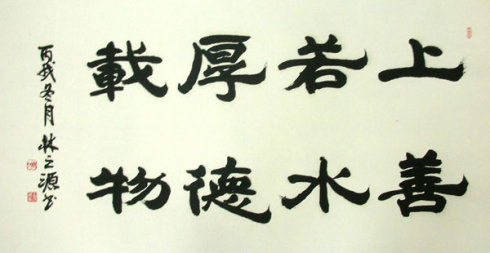 上善
若水
厚德
載物
丙戌冬月 林之源书